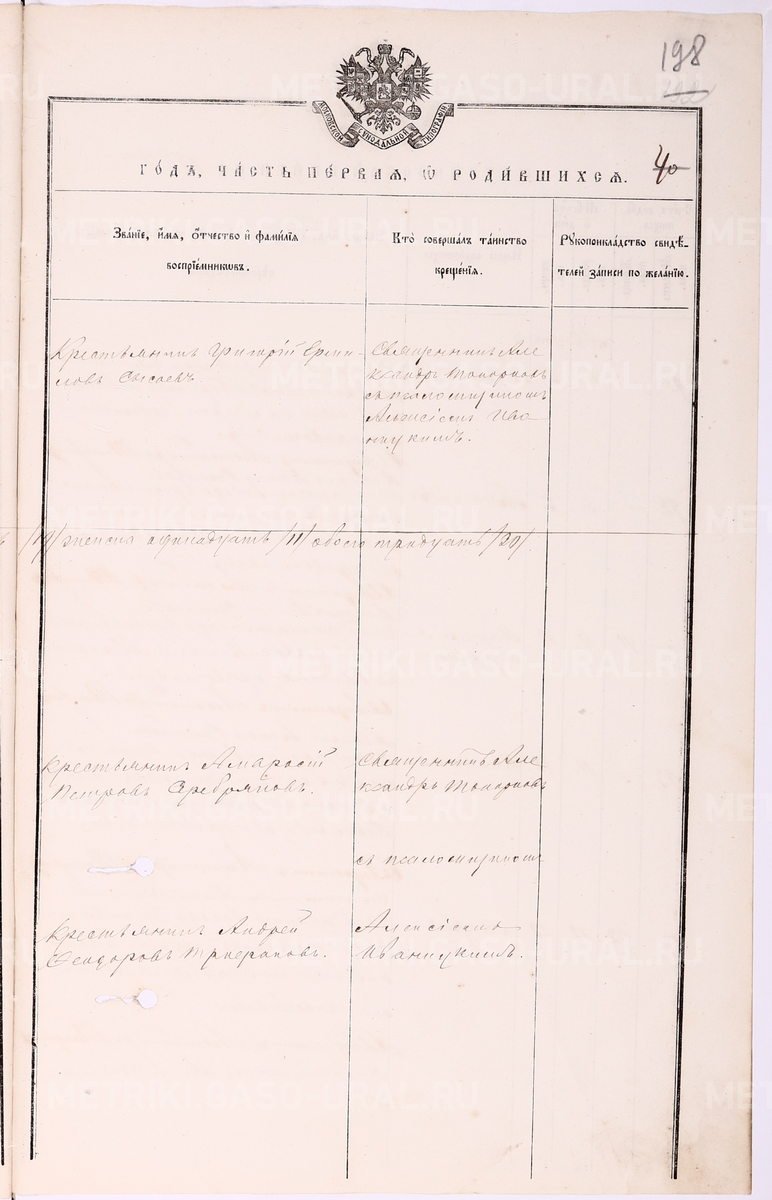 198
МОСКОВСКОЙ СѴНОДАЛЬНОЙ ТИПОГРАФІИ
ГОДЪ, ЧАСТЬ ПЕРВАЯ, Ѡ РОДИВШИХСЯ.
40
Званіе, имя, отчество и фамилія
воспріемниковъ.
Кто совершалъ таинство
крещенія.
Рукоприкладство свидѣ-
телей записи по желанію.
Крестьянинъ Григорій Ерми-
ловъ Сысоевъ
Священникъ Але
ксандръ Топорковъ
съ псаломщикомъ
Алексіемъ Ива
ницкимъ.
/19/ женска одинадцать /11/ обоего тридцать /30/.
Крестьянинъ Амвросій
Петровъ Серебряковъ.
Священникъ Але
ксандръ Топорковъ
съ псаломщикомъ
Крестьянинъ Андрей
Ѳеодоровъ
Алексіемъ
Иваницкимъ.
METRIKI.GASO-URAL.RU
METRIKI.GASO-URAL.RU
METRIKI.GASO-URAL.RU